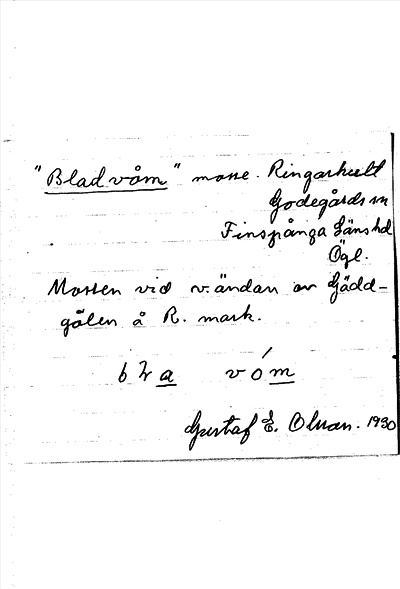 "Bladvåm" mosse. Ringarhult
Godegårds sn
Finspånga Läns hd
Ögl.
Mossen vid v. ändan av Gädd-
gölen å R. mark.
vóm
Gustaf E. Olsson. 1930